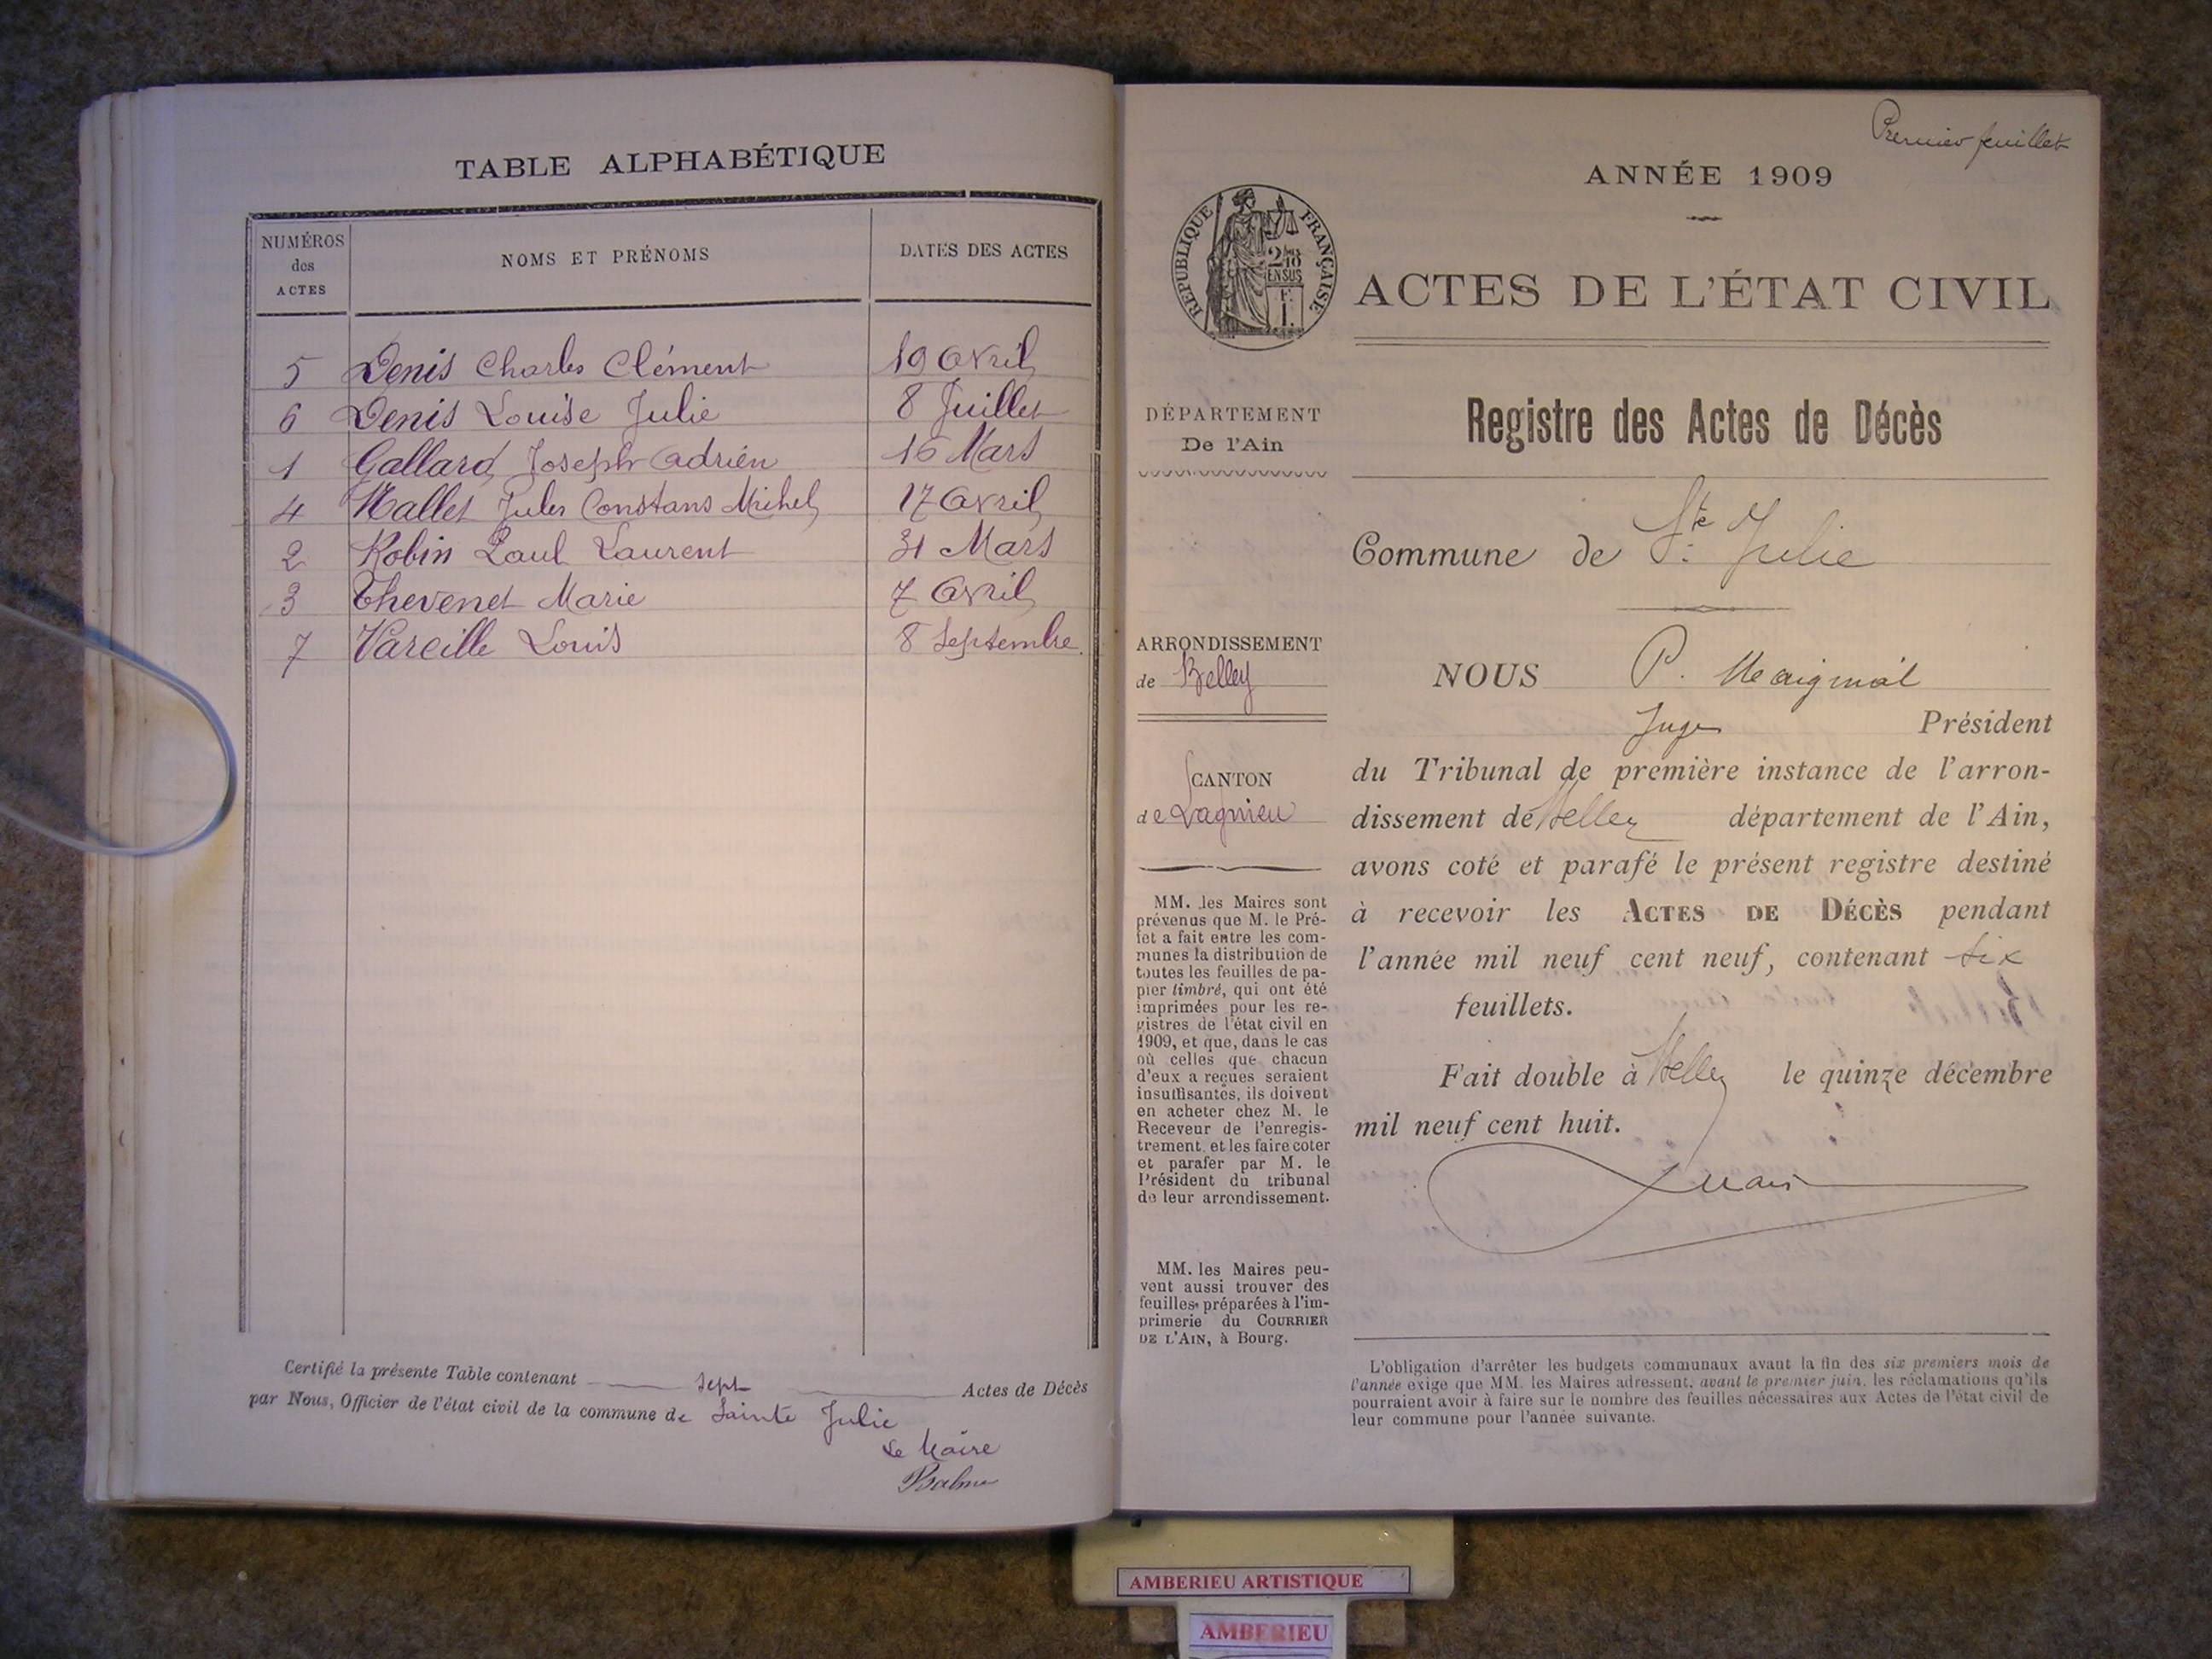 TABLE ALPHABÉTIQUE
NUMÉROS des ACTES
NOMS ET PRÉNOMS
DATES DES ACTES
5 Denis Charles Clément 19 Avril
6 Denis Louise Julie 8 Juillet
1 Gallard Joseph Adrien 16 Mars
4 Mallet Jules Constans Michel 17 Avril
2 Robin Paul Laurent 31 Mars
3 Thevenet Marie 7 Avril
7 Vareille Louis 8 Septembre
Certifié la présente Table contenant sept Actes de Décès
par Nous, Officier de l'état civil de la commune de Sainte Julie
Le Maire
Premier feuillet
ANNÉE 1909
RÉPUBLIQUE FRANÇAISE
ACTES DE L'ÉTAT CIVIL
DÉPARTEMENT
De l'Ain
ARRONDISSEMENT
de Belley
CANTON
de Lagnieu
MM. les Maires sont
prévenus que M. le Pré-
fet a fait entre les com-
munes la distribution de
toutes les feuilles de pa-
pier timbré, qui ont été
imprimées pour les re-
gistres de l'état civil en
1909, et que, dans le cas
où celles que chacun
d'eux a reçues seraient
insuffisantes, ils doivent
en acheter chez M. le
Receveur de l'enregis-
trement, et les faire coter
et parafer par M. le
Président du tribunal
de leur arrondissement.
MM. les Maires peu-
vent aussi trouver des
feuilles préparées à l'im-
primerie du COURRIER
DE L'AIN, à Bourg.
Registre des Actes de Décès
Commune de Ste Julie
NOUS P.
Juge Président
du Tribunal de première instance de l'arron-
dissement de Belley département de l'Ain,
avons coté et parafé le présent registre destiné
à recevoir les ACTES DE DÉCÈS pendant
l'année mil neuf cent neuf, contenant six
feuillets.
Fait double à Belley le quinze décembre
mil neuf cent huit.
L'obligation d'arrêter les budgets communaux avant la fin des six premiers mois de
l'année exige que MM. les Maires adressent, avant le premier juin, les réclamations qu'ils
pourraient avoir à faire sur le nombre des feuilles nécessaires aux Actes de l'état civil de
leur commune pour l'année suivante.
AMBERIEU ARTISTIQUE
AMBERIEU